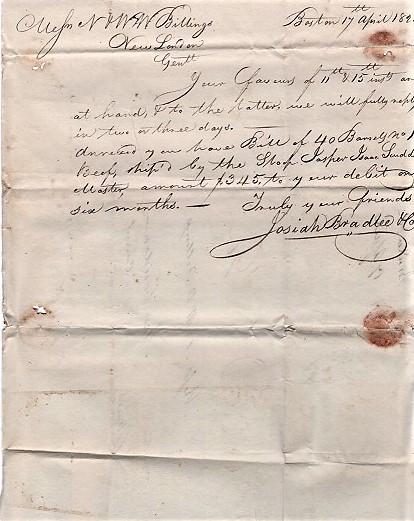 Messrs N & W W Billings Boston 17th April 182
New London
Gentn
Your favours of 11th & 15 inst are
at hand, & to the latter we will fully reply
in two or three days.
Annexed you have Bill of 40 Barrels No 1
Beef, ship'd by the Sloop Jasper Isaac
Master, amount $345, to your debit on
six months. —
Truly your friends
Josiah Bradlee & Co